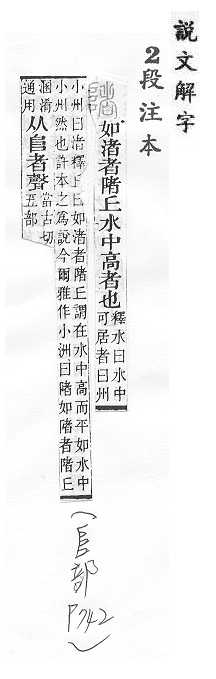 說文解字
2段注本
陼 如渚者陼丘水中高者也
釋水曰水中
可居者曰州
小州曰渚釋丘曰如渚者陼丘謂在水中高而平如水中
小州然也許本之爲說今爾雅作小洲曰陼如陼者陼丘
溷淆
通用
从𨸏者聲
當古切
五部
(𨸏部 P742)